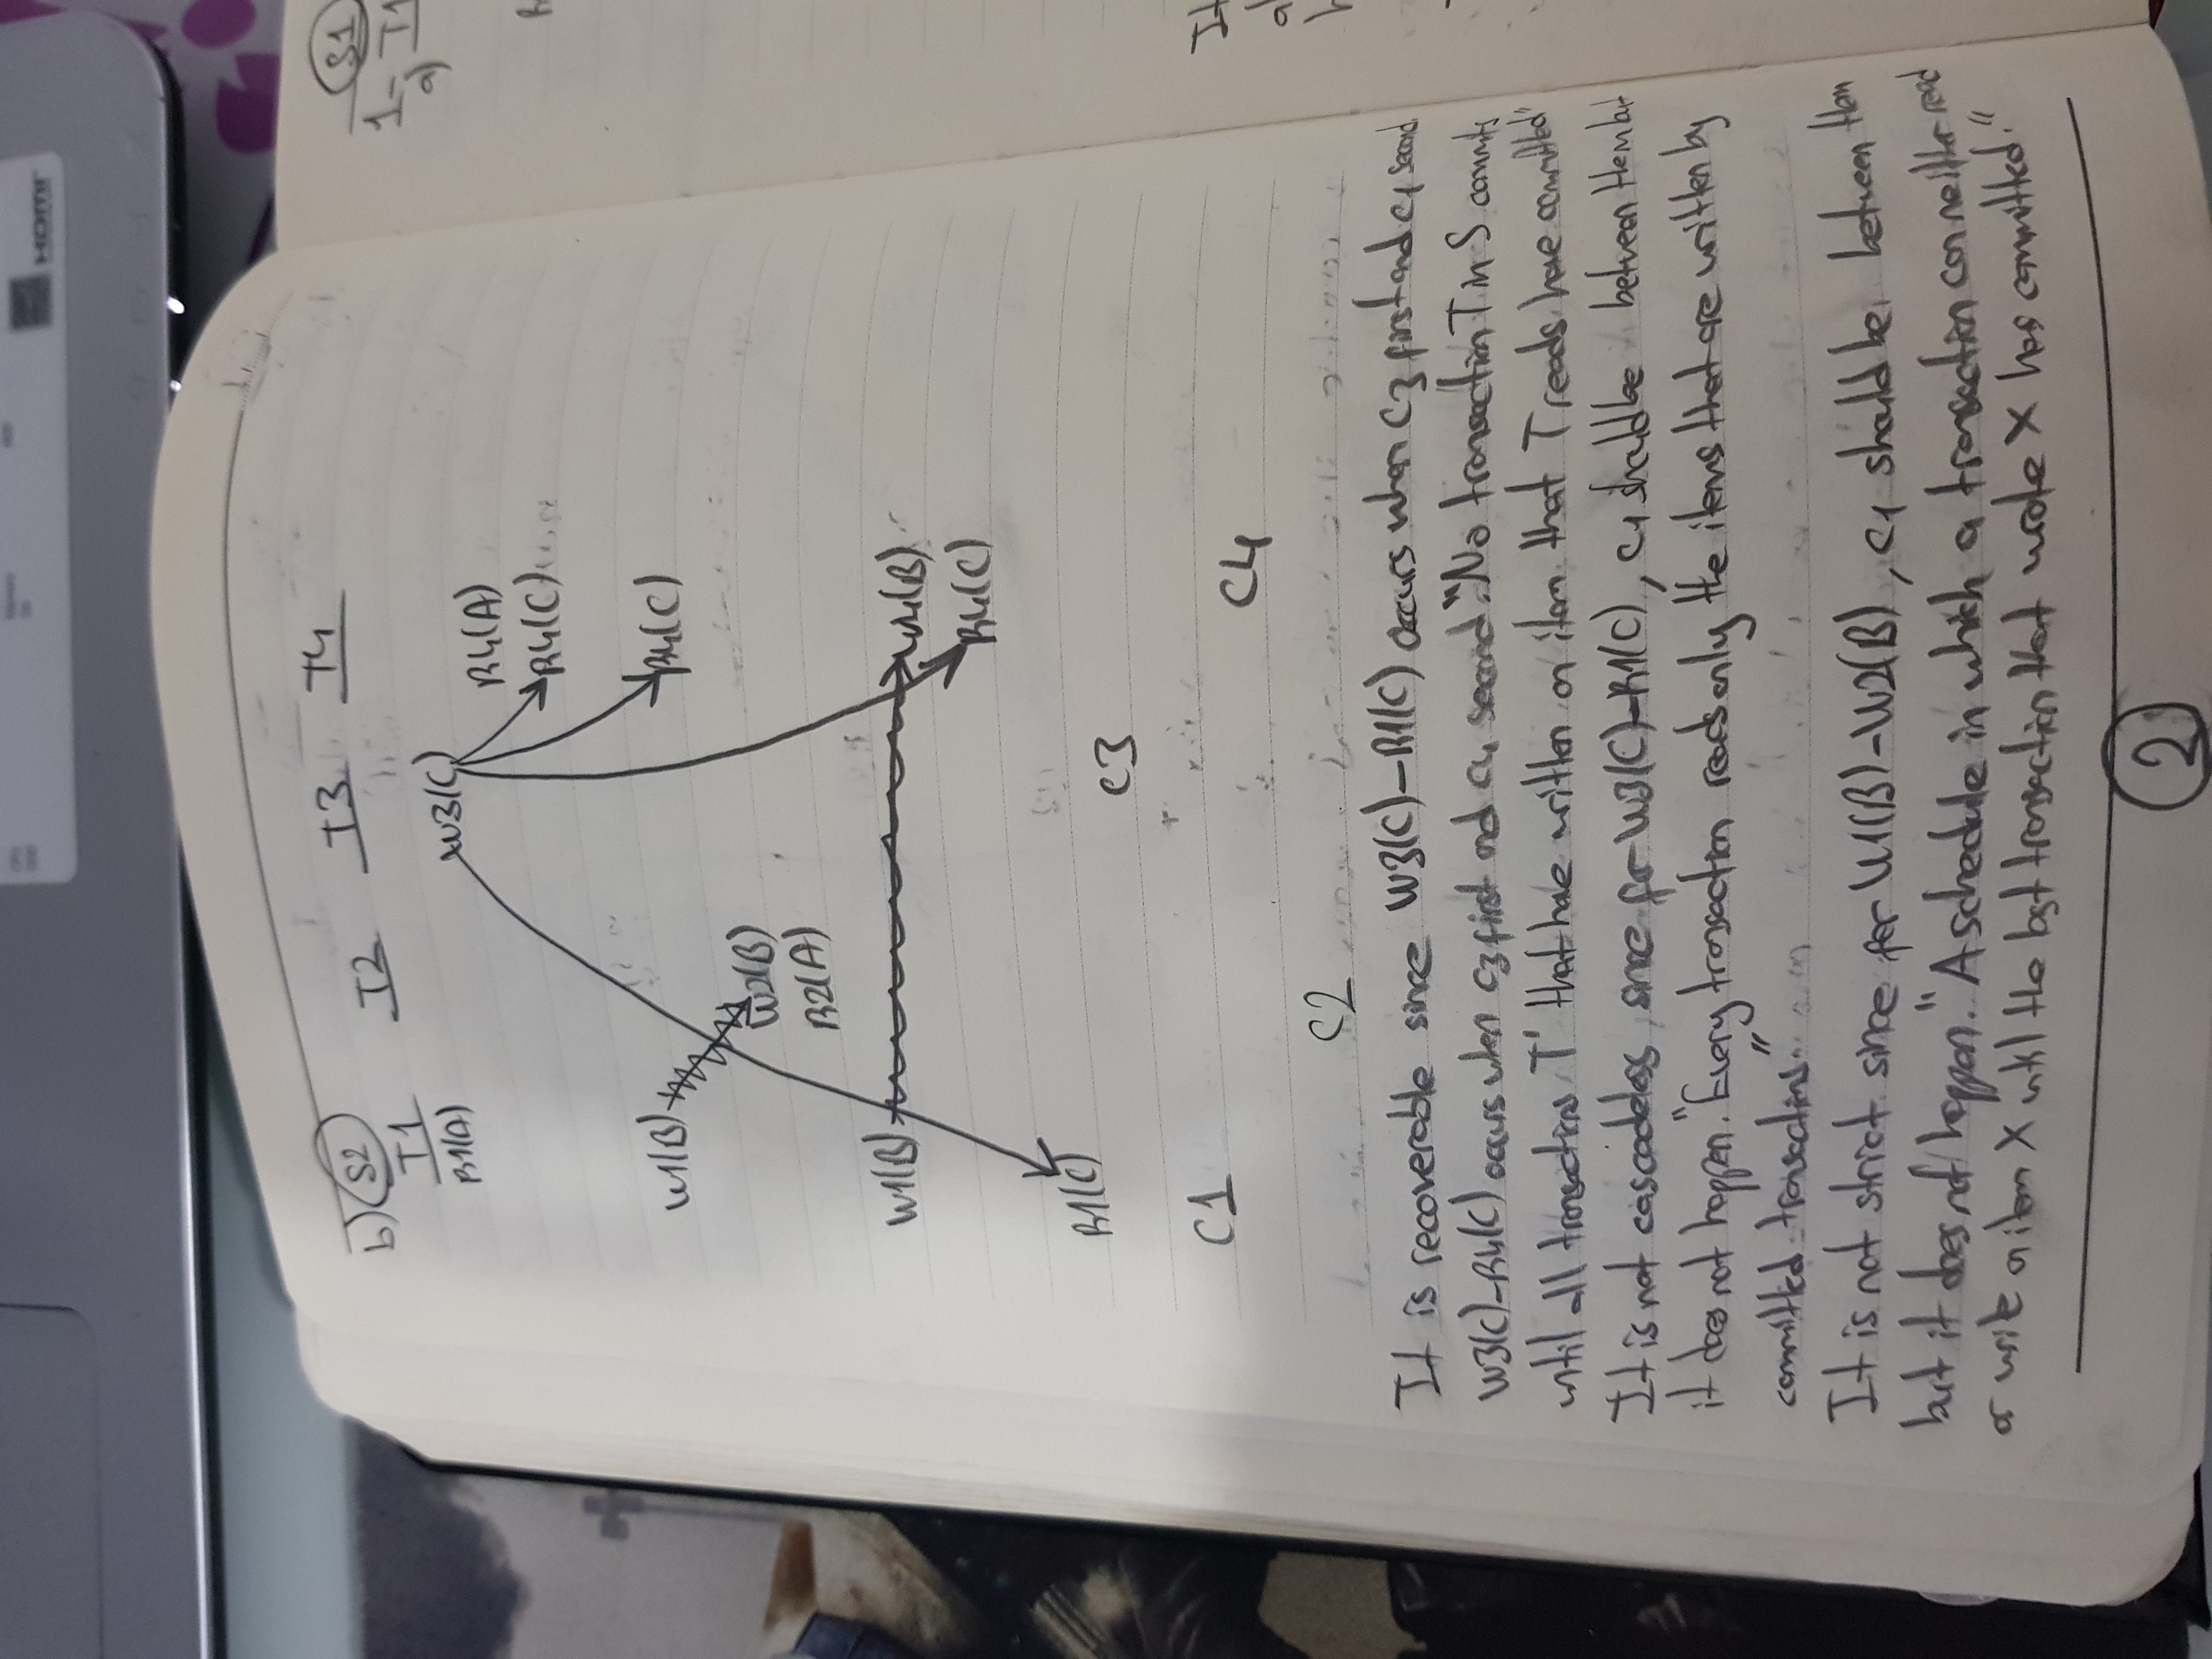 HDMI
b) S2
T1 T2 T3 T4
R1(A)
W3(C)
R4(A)
R4(C)
W1(B)
R4(C)
W2(B)
R2(A)
W1(B) W4(B)
R4(C)
R1(C)
C3
C1
C4
C2
It is recoverable since W3(C)-R1(C) occurs when C3 first and C1 second.
W3(C)-R4(C) occurs when C3 first and C4 second. "No transaction T in S commits
until all transactions T' that have written an item that T reads have committed"
It is not cascadeless, since for W3(C)-R1(C), C1 should be between them but
it does not happen. "Every transaction reads only the items that are written by
committed transactions."
It is not strict since for W1(B)-W2(B), C1 should be between them
but it does not happen. "A schedule in which a transaction can neither read
or write an item X until the last transaction that wrote X has committed."
2
S1
1-
a) T1
It